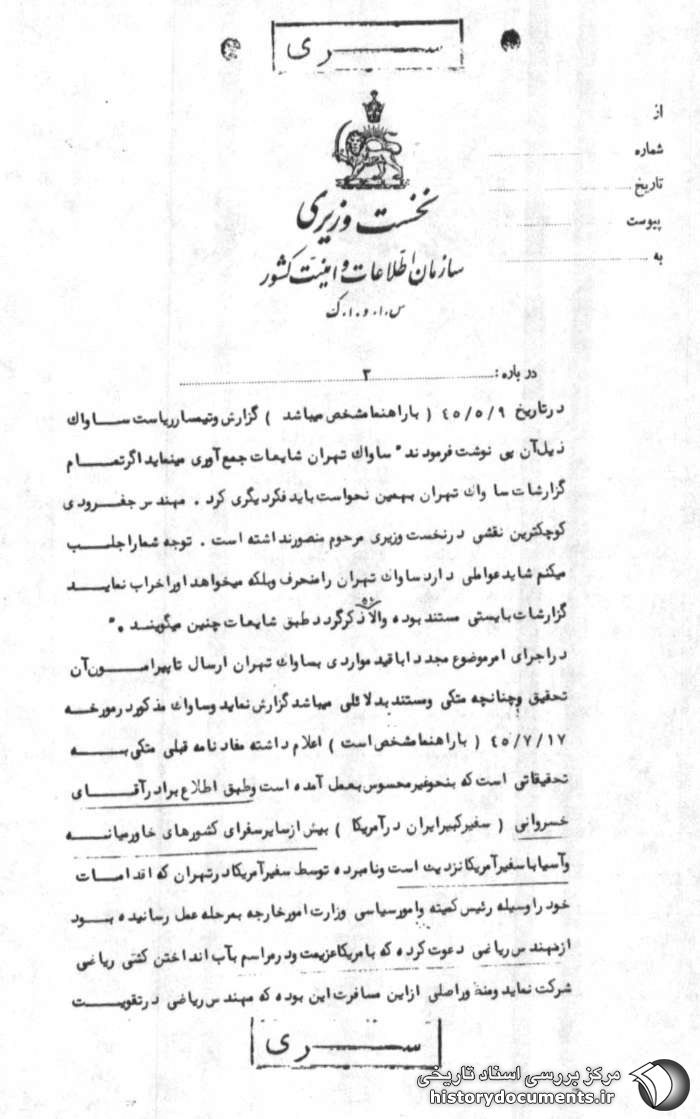 ســـــری
از
شماره
تاریخ
پیوست
به
نخست وزیری
سازمان اطلاعات و امنیت کشور
س.ا.و.ا.ک
درباره: ۲
درتاریخ ٤٥/٥/٩ ( باراهنما مشخص میباشد ) گزارش وتیمسار ریاست ســاواك
ذیل آن پی نوشت فرمودند " ساواك تهران شایعات جمع آوری مینماید اگر تمــام
گزارشات ساواك تهران بهمین نحو است باید فکر دیگری کرد . مهندس جفــرودی
کوچکترین نقشی درنخست وزیری مرحوم منصور نداشته است . توجه شمارا جلــب
میکنم شاید عواملی دارد ساواك تهران را منحرف وبلکه میخواهد اورا خراب نمایــد
گزارشات بایستی مستند بوده والا ذکر گردد طبق شایعات چنین میگوینــد . "
دراجرای امر موضوع مجددا باقید مواردی بساواك تهران ارسال تاپیرامــون آن
تحقیق وچنانچه متکی ومستند بدلائلی میباشد گزارش نماید وساواك مذکور درمورخــه
٤٥/٧/١٧ ( باراهنما مشخص است ) اعلام داشته مفاد نامه قبلی متکی بــه
تحقیقاتی است که بنحو غیر محسوس بعمل آمده است وطبق اطلاع برادر آقــای
خسروانی ( سفیر کبیر ایران درآمریکا ) بیش از سایر سفرای کشورهای خاورمیانــه
وآسیا با سفیر آمریکا نزدیك است ونامبرده توسط سفیر آمریکا درتهران که اقدامــات
خود را وسیله رئیس کمیته وامور سیاسی وزارت امور خارجه بمرحله عمل رسانیده بــود
از مهندس ریاضی دعوت کرده که بامریکا عزیمت ودر مراسم بآب انداختن کشتی ریاضی
شرکت نماید ومنظور اصلی ازاین مسافرت این بوده که مهندس ریاضی درتقویــت
ســـــری
مرکز بررسی اسناد تاریخی
historydocuments.ir